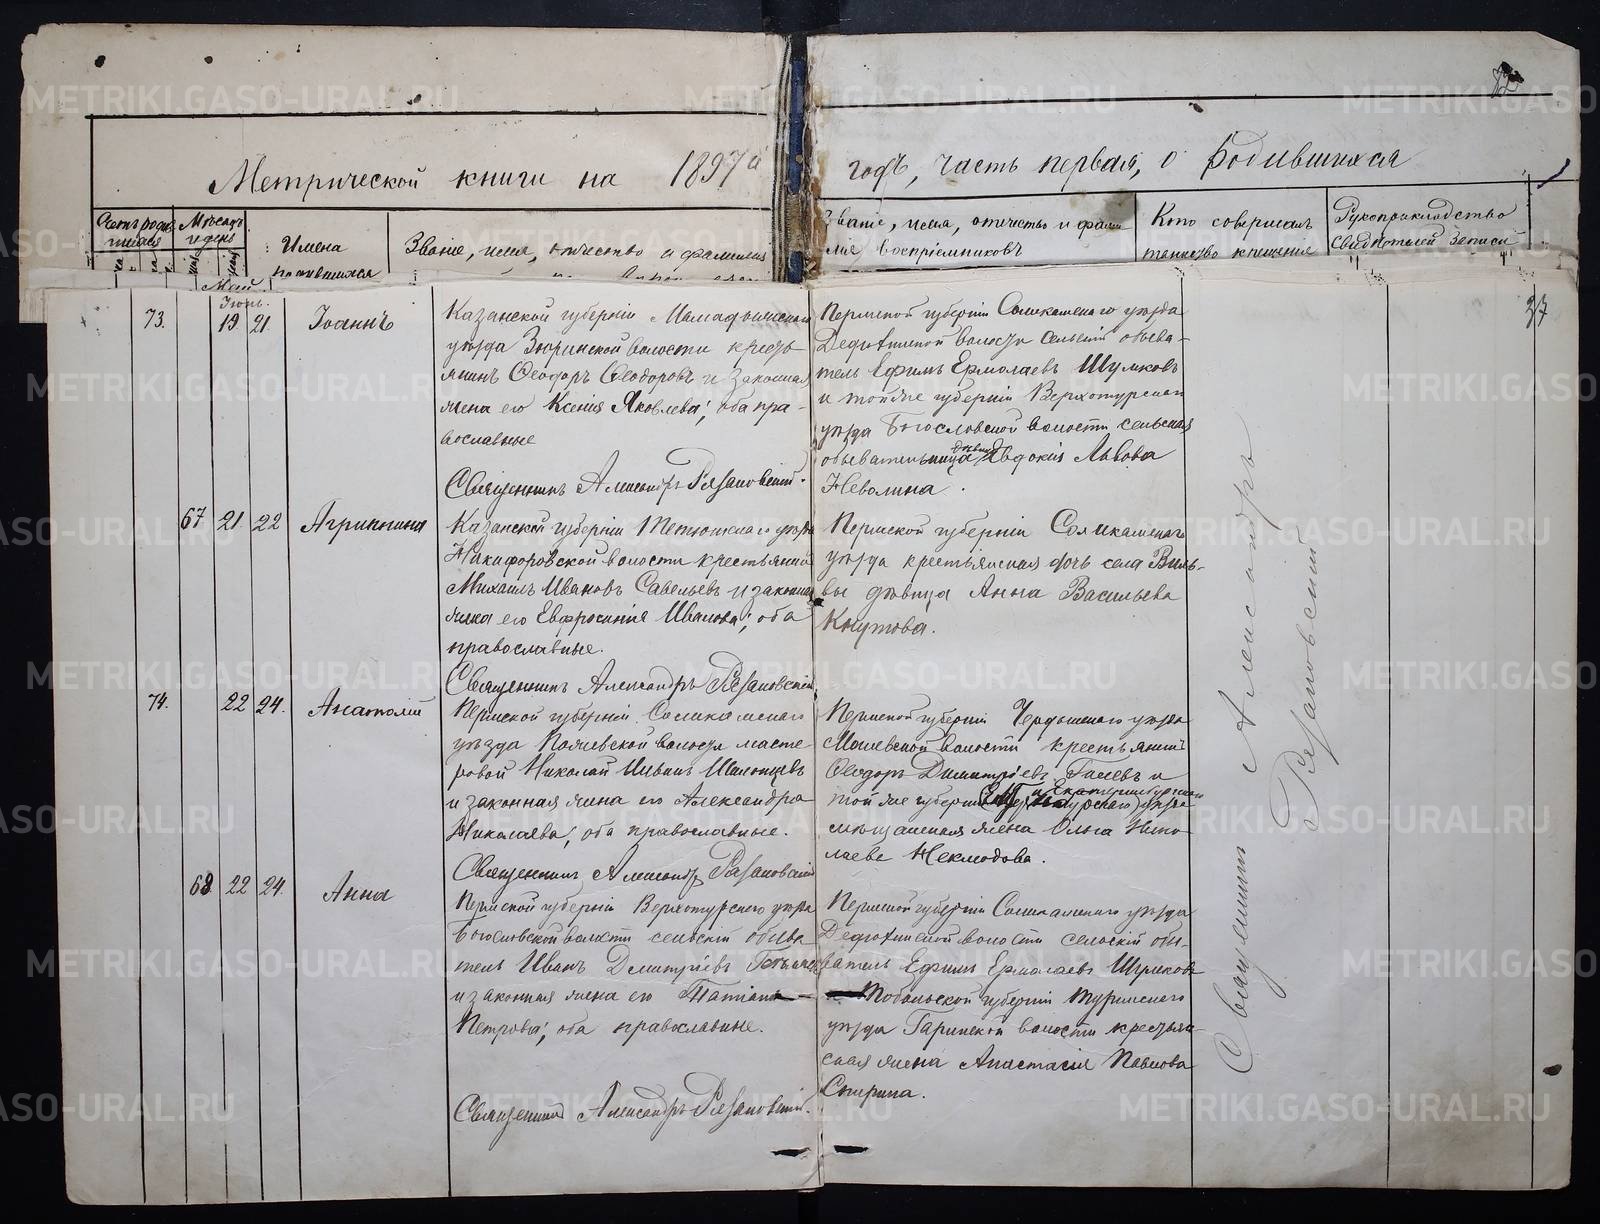 Метрической книги на 1897й
годъ, часть первая, о родившихся
Счетъ родив
шихся
Мѣсяцъ
и день
Имена
родившихся
Званіе, имя, отчество и фамилия
Званіе, имя, отчество и фами
лия воспріемниковъ
Кто совершалъ
таинство крещенія
Рукоприкладство
свидѣтелей записи
Май
Іюнь.
73. 19 21. Іоаннъ
Казанской губерніи Мамадышскаго
уѣзда Зюринской волости кресть-
янинъ Ѳеодоръ Ѳеодоровъ и законная
жена его Ксенія Яковлева; оба пра-
вославные
Священникъ Александръ Рязановскій.
Пермской губерніи Соликамскаго уѣзда
Дедюхинской волости сельскій обыва-
тель Ефимъ Ермолаевъ Шумковъ
и той же губерніи Верхотурскаго
уѣзда Богословской волости сельская
обывательница дѣвица Евдокія Львова
Неволина.
37
67 21. 22 Агриппина
Казанской губерніи Тетюшскаго уѣзда
Никифоровской волости крестьянинъ
Михаилъ Ивановъ Савельевъ и законная
жена его Евфросинія Иванова; оба
православные.
Священникъ Александръ Рязановскій.
Пермской губерніи Соликамскаго
уѣзда крестьянская дочь села Виль-
вы дѣвица Анна Васильева
Кнутова.
74. 22 24. Анатолій
Пермской губерніи Соликамскаго
уѣзда волости масте-
ровой Николай
и законная жена его Александра
Николаева; оба православные.
Священникъ Александръ Рязановскій
Пермской губерніи Чердынскаго уѣзда
Мошевской волости крестьянинъ
Ѳеодоръ Димитріевъ Галевъ и
той же губерніи Екатеринбургскаго уѣзда
мѣщанская жена Ольга Нико-
лаева Неклюдова.
68 22 24. Анна
Пермской губерніи Верхотурскаго уѣзда
Богословской волости сельскій обыва-
тель Иванъ Димитріевъ
и законная жена его Татіана
Петрова; оба православные.
Священникъ Александръ Рязановскій.
Пермской губерніи Соликамскаго уѣзда
Дедюхинской волости сельскій обы-
ватель Ефимъ Ермолаевъ Шумковъ
и Тобольской губерніи Туринскаго
уѣзда Гаринской волости крестьян-
ская жена Анастасія Павлова
Спирина.
Священникъ Александръ
Рязановскій
METRIKI.GASO-URAL.RU